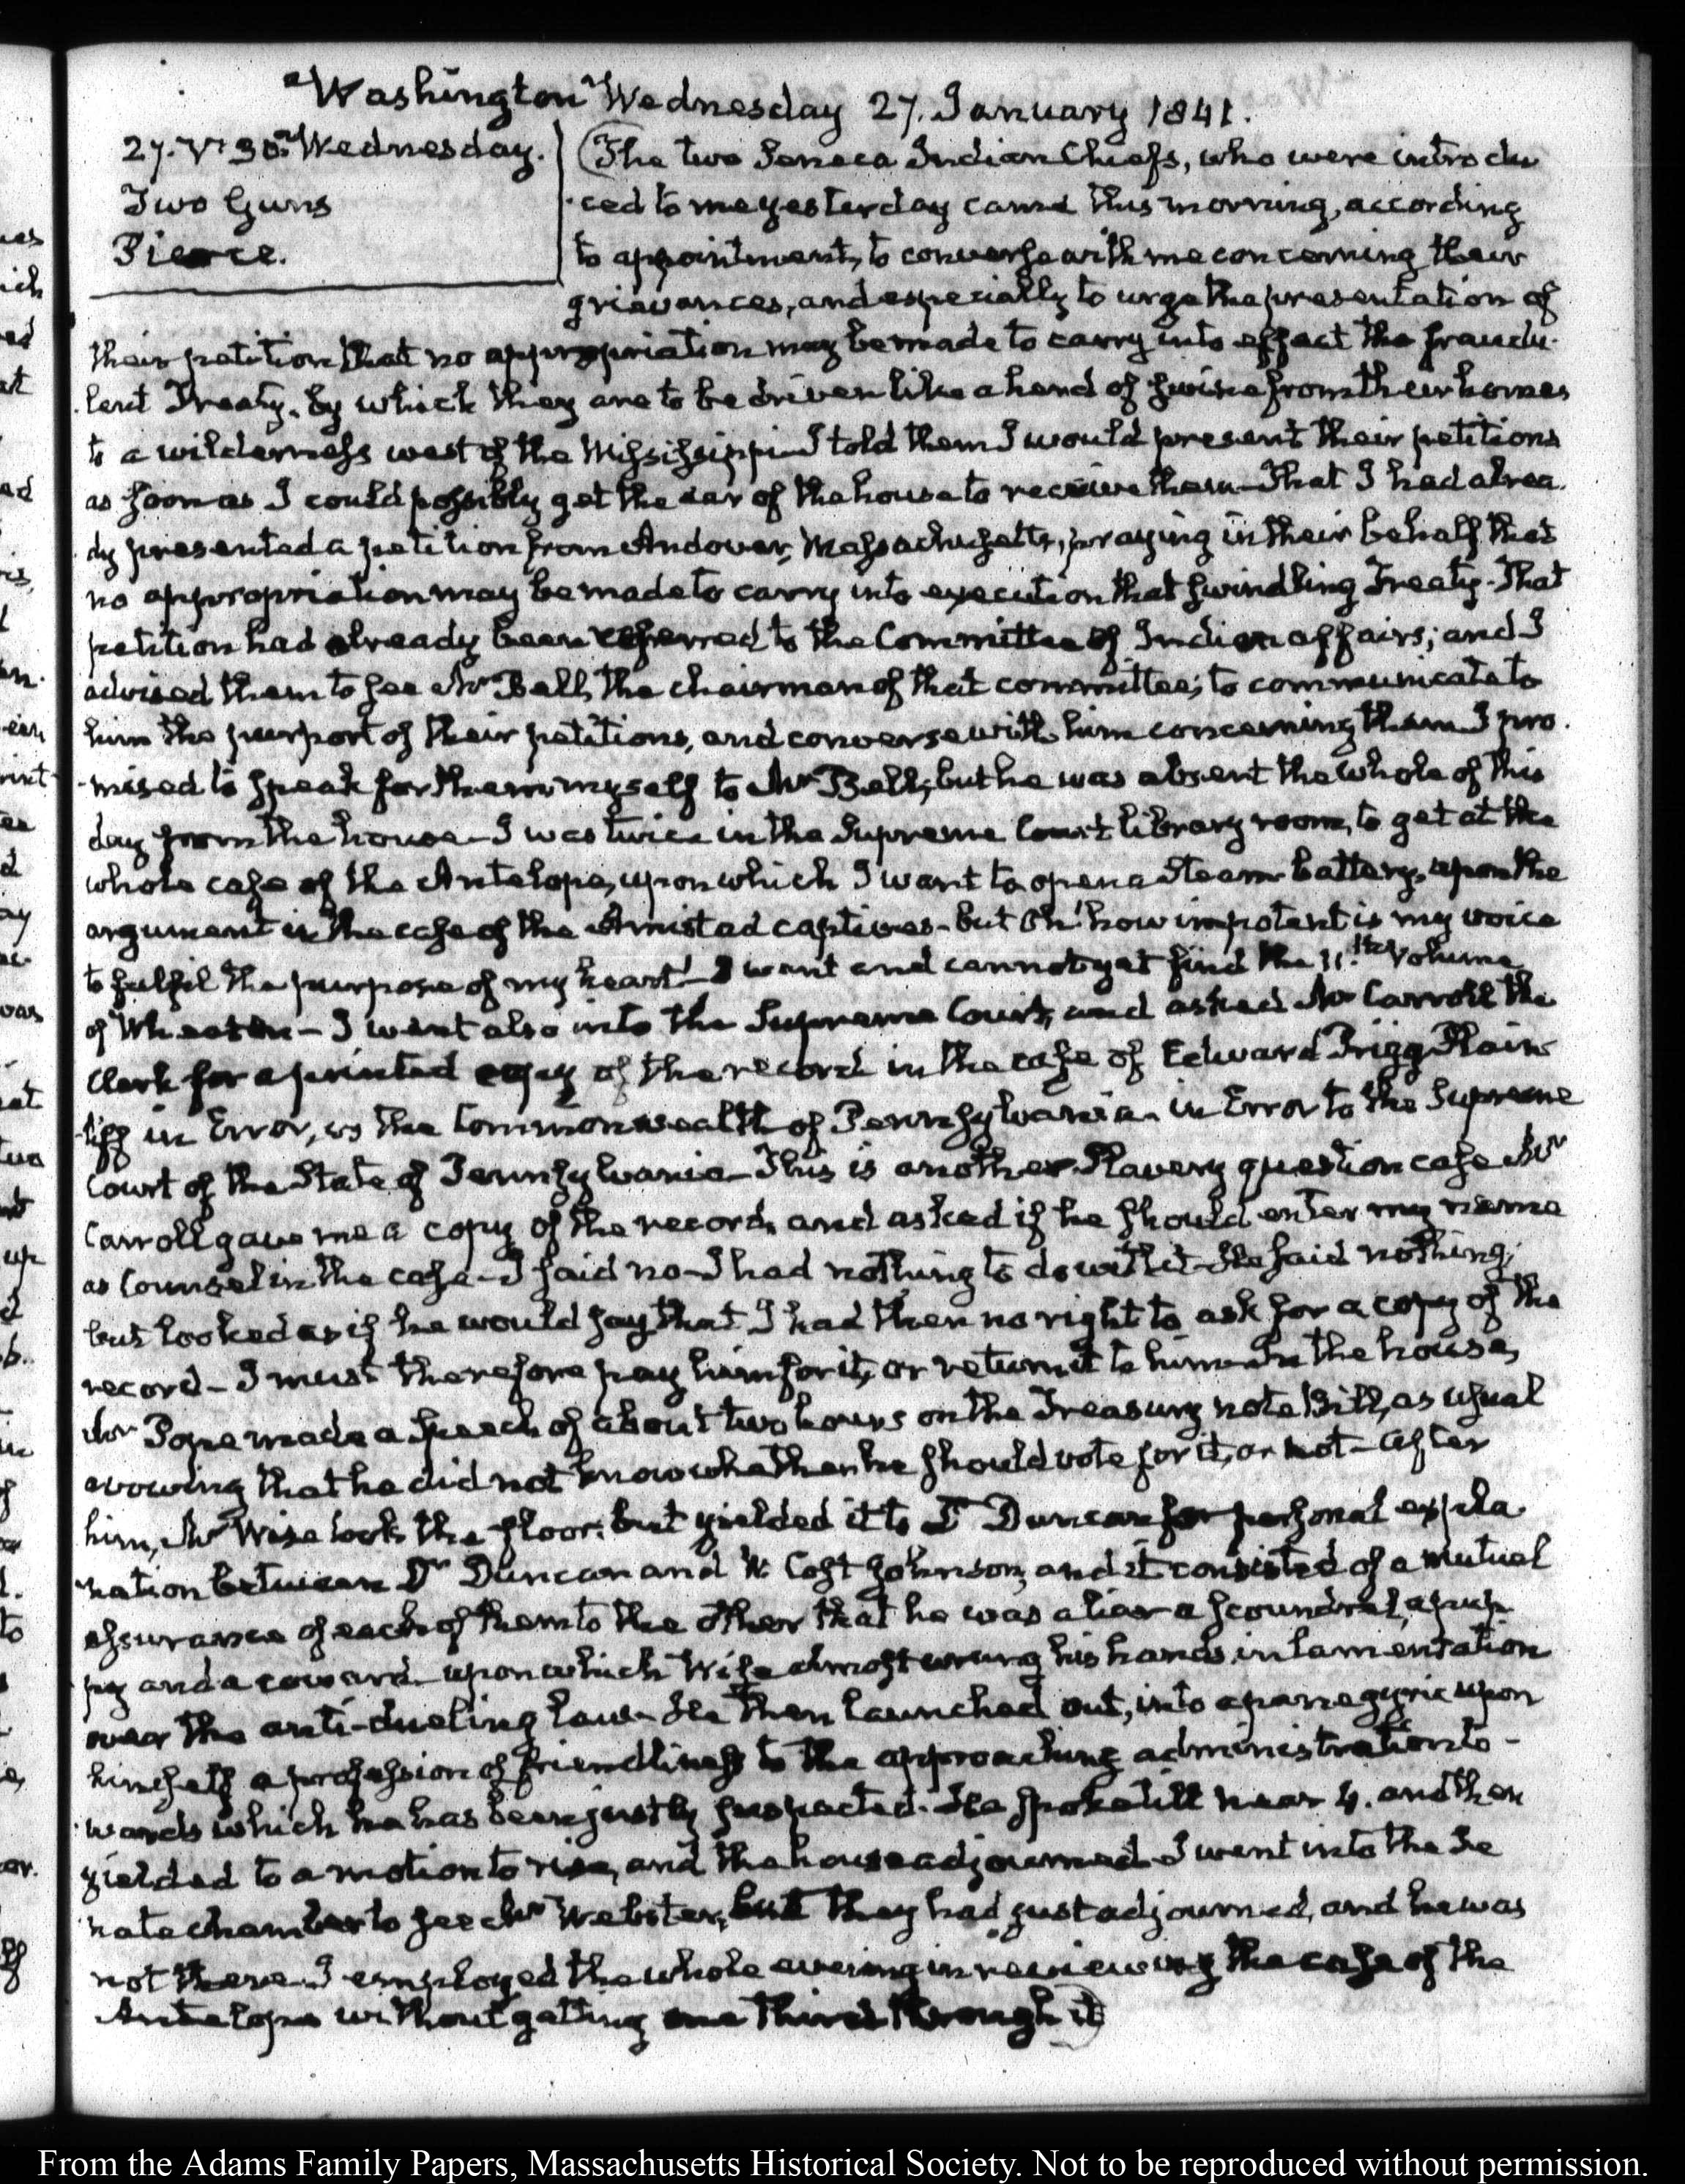 Washington Wednesday 27. January 1841.
27. V: 30. Wednesday.
Two Guns
Pierce.
The two Seneca Indian Chiefs, who were introdu
ced to me yesterday came this morning, according
to appointment, to converse with me concerning their
grievances, and especially to urge the presentation of
their petition that no appropriation may be made to carry into effect the fraudu-
lent Treaty, by which they are to be driven like a herd of swine from their homes
to a wilderness west of the Mississippi— I told them I would present their petitions
as soon as I could possibly get the ear of the house to receive them— That I had alrea-
dy presented a petition from Andover, Massachusetts, praying in their behalf that
no appropriation may be made to carry into execution that swindling Treaty— That
petition had already been referred to the Committee of Indian affairs; and I
advised them to see Mr Bell, the chairman of that committee; to communicate to
him the purport of their petitions, and converse with him concerning them. I pro-
-mised to speak for them myself to Mr Bell; but he was absent the whole of this
day from the house— I was twice in the Supreme Court library room, to get at the
whole case of the Antelope, upon which I want to open a Steam battery, upon the
argument in the case of the Amistad captives— but Oh! how impotent is my voice
to fulfil the purpose of my heart!— I want and cannot yet find the 11.th Volume
of Wheaton— I went also into the Supreme Court, and asked Mr Carroll the
Clerk for a printed copy of the record in the case of Edward Prigg Plain
-tiff in Error, vs the Commonwealth of Pennsylvania— in Error to the Supreme
Court of the State of Pennsylvania— This is another Slavery question case Mr
Carroll gave me a copy of the record, and asked if he should enter my name
as Counsel in the case— I said no— I had nothing to do with it— He said nothing;
but looked as if he would say that I had then no right to ask for a copy of the
record— I must therefore pay him for it, or return it to him— In the house,
Mr Pope made a speech of about two hours on the Treasury note Bill, as usual
avowing that he did not know whether he should vote for it, or not— after
him, Mr Wise took the floor; but yielded it to Dr Duncan for personal expla
-nation between Dr Duncan and W. Cost Johnson, and it consisted of a mutual
assurance of each of them to the other that he was a liar a scoundrel, a pup
py and a coward— upon which Wise almost wrung his hands in lamentation
over the anti-dueling law— He then launched out, into a panegyric upon
himself a profession of friendliness to the approaching administration to-
wards which he has been justly suspected. He spoke till near 4. and then
yielded to a motion to rise, and the house adjourned— I went into the Se
nate chamber to see Mr Webster, but they had just adjourned, and he was
not there— I employed the whole evening in reviewing the case of the
Antelope without getting one third through it
From the Adams Family Papers, Massachusetts Historical Society. Not to be reproduced without permission.